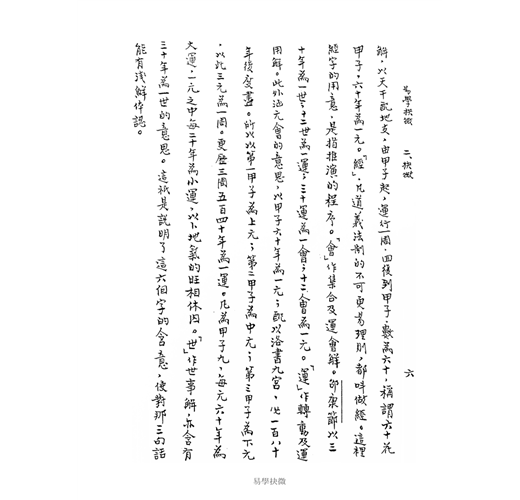 易學抉微 二、抉微 六
解，以天干配地支，由甲子起，運行一周，回復到甲子，數為六十，稱謂六十花
甲子，六十年為一元。「經」，凡道義法制的不可更易理則，都叫做經。這裡
經字的用意，是指推演的程序。「會」作集合及運會解。邵康節以三
十年為一世；十二世為一運；三十運為一會；十二會為一元。「運」作轉動及運
用解。此外涵元會的意思，以甲子六十年為一元；配以洛書九宮，必一百八十
年後度盡。所以以第一甲子為上元；第二甲子為中元；第三甲子為下元
，以此三元為一周。更歷三周五百四十年為一運。凡為甲子九，每元六十年為
大運，一元之中每二十年為小運，以卜地氣的旺相休囚。「世」作世事解，亦含有
三十年為一世的意思。這祇是說明了這六個字的含意，使對那三句話
能有淺鮮体認。
易學抉微